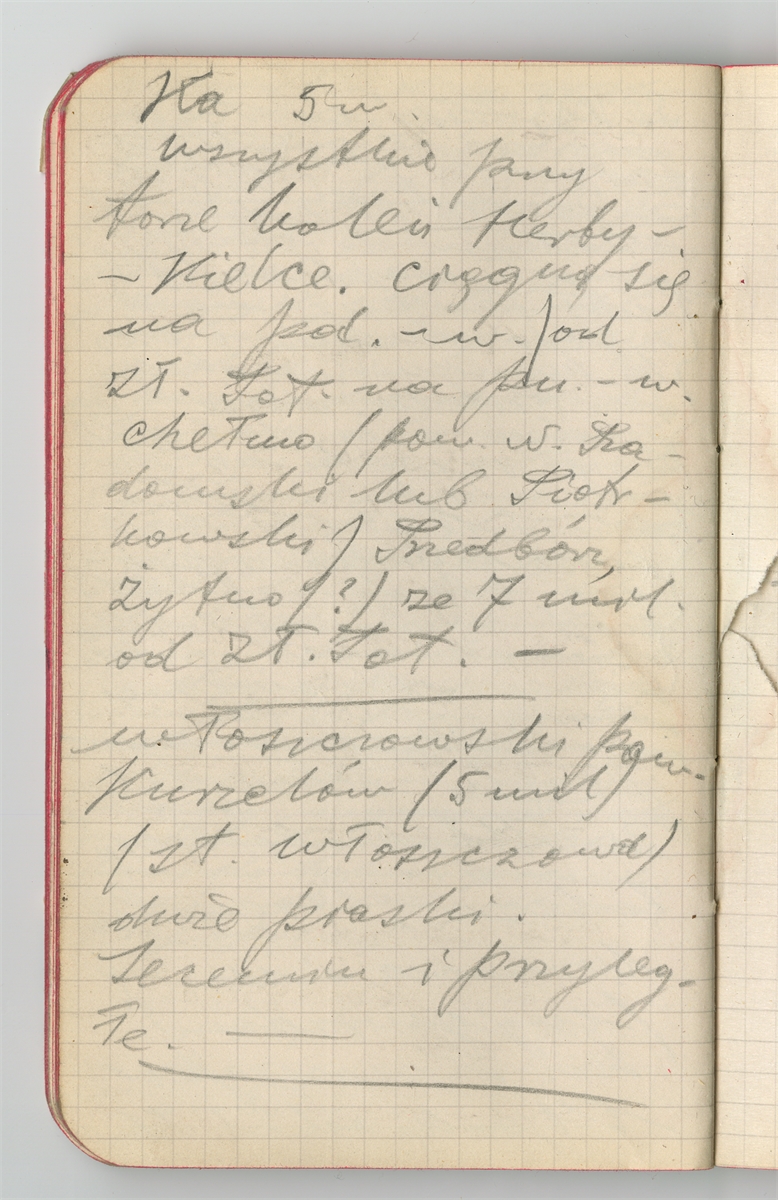 Ka 5 w.
wszystkie przy
torze kolei Herby-
- Kielce. ciągną się
na pd. - w. / od
Zł. Pot. na pn. - w.
Chełmo (pow. N. Ra-
domski lub Piotr-
kowski) Przedbórz,
Żytno (?) ze 7 mil.
od Zł. Pot. —
włoszczowski pow.
Kurzelów (5 mil)
(st. Włoszczowa)
duże piaski.
i przyleg-
łe. —